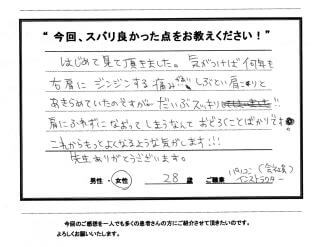 “今回、スバリ良かった点をお教えください！”
はじめて見て頂きました。気がつけば何年も
右肩にジンジンする痛みが!! しぶとい肩こりと
あきらめていたのですが だいぶスッキリ
肩にふれずになおってしまうなんて おどろくことばかりです。
これからもっとよくなるような気がします!!!
先生ありがとうございます。
男性・女性 28歳 ご職業 パソコン(会社員)
インストラクター
今回のご感想を一人でも多くの患者さんの方にご紹介させて頂きたいのです。
よろしくお願いいたします。